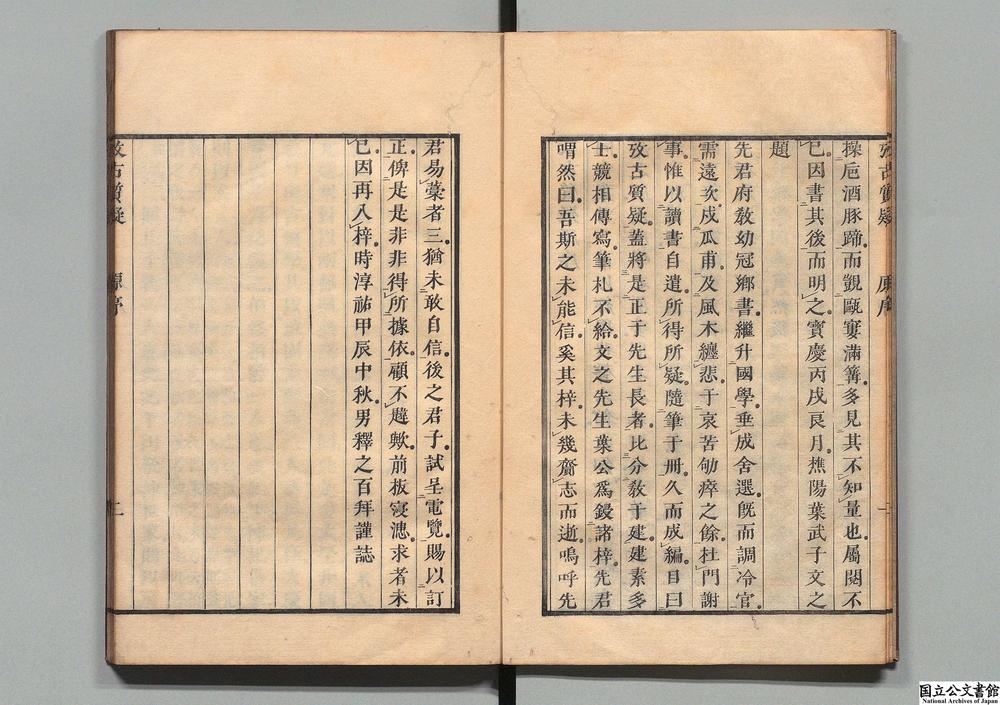 攷古質疑 原序 一
操巵酒豚蹄而觀甌窶滿篝多見其不知量也屬閱不
已因書其後而明之寶慶丙戌良月樵陽葉武子文之
題
先君府敎幼冠鄉書繼升國學垂成舍選旣而調冷官
需遠次戍瓜甫及風木纏悲于哀苦劬瘁之餘杜門謝
事惟以讀書自遣所得所疑隨筆于册久而成編目曰
攷古質疑蓋將是正于先生長者比分敎于建建素多
士競相傳寫筆札不給文之先生葉公爲鋟諸梓先君
喟然曰吾斯之未能信奚其梓未幾齎志而逝嗚呼先
君易藁者三猶未敢自信後之君子試呈電覽賜以訂
正俾是是非非得所據依顧不韙歟前板寖漶求者未
已因再入梓時淳祐甲辰中秋男釋之百拜謹誌
攷古質疑 原序 二
国立公文書館
National Archives of Japan